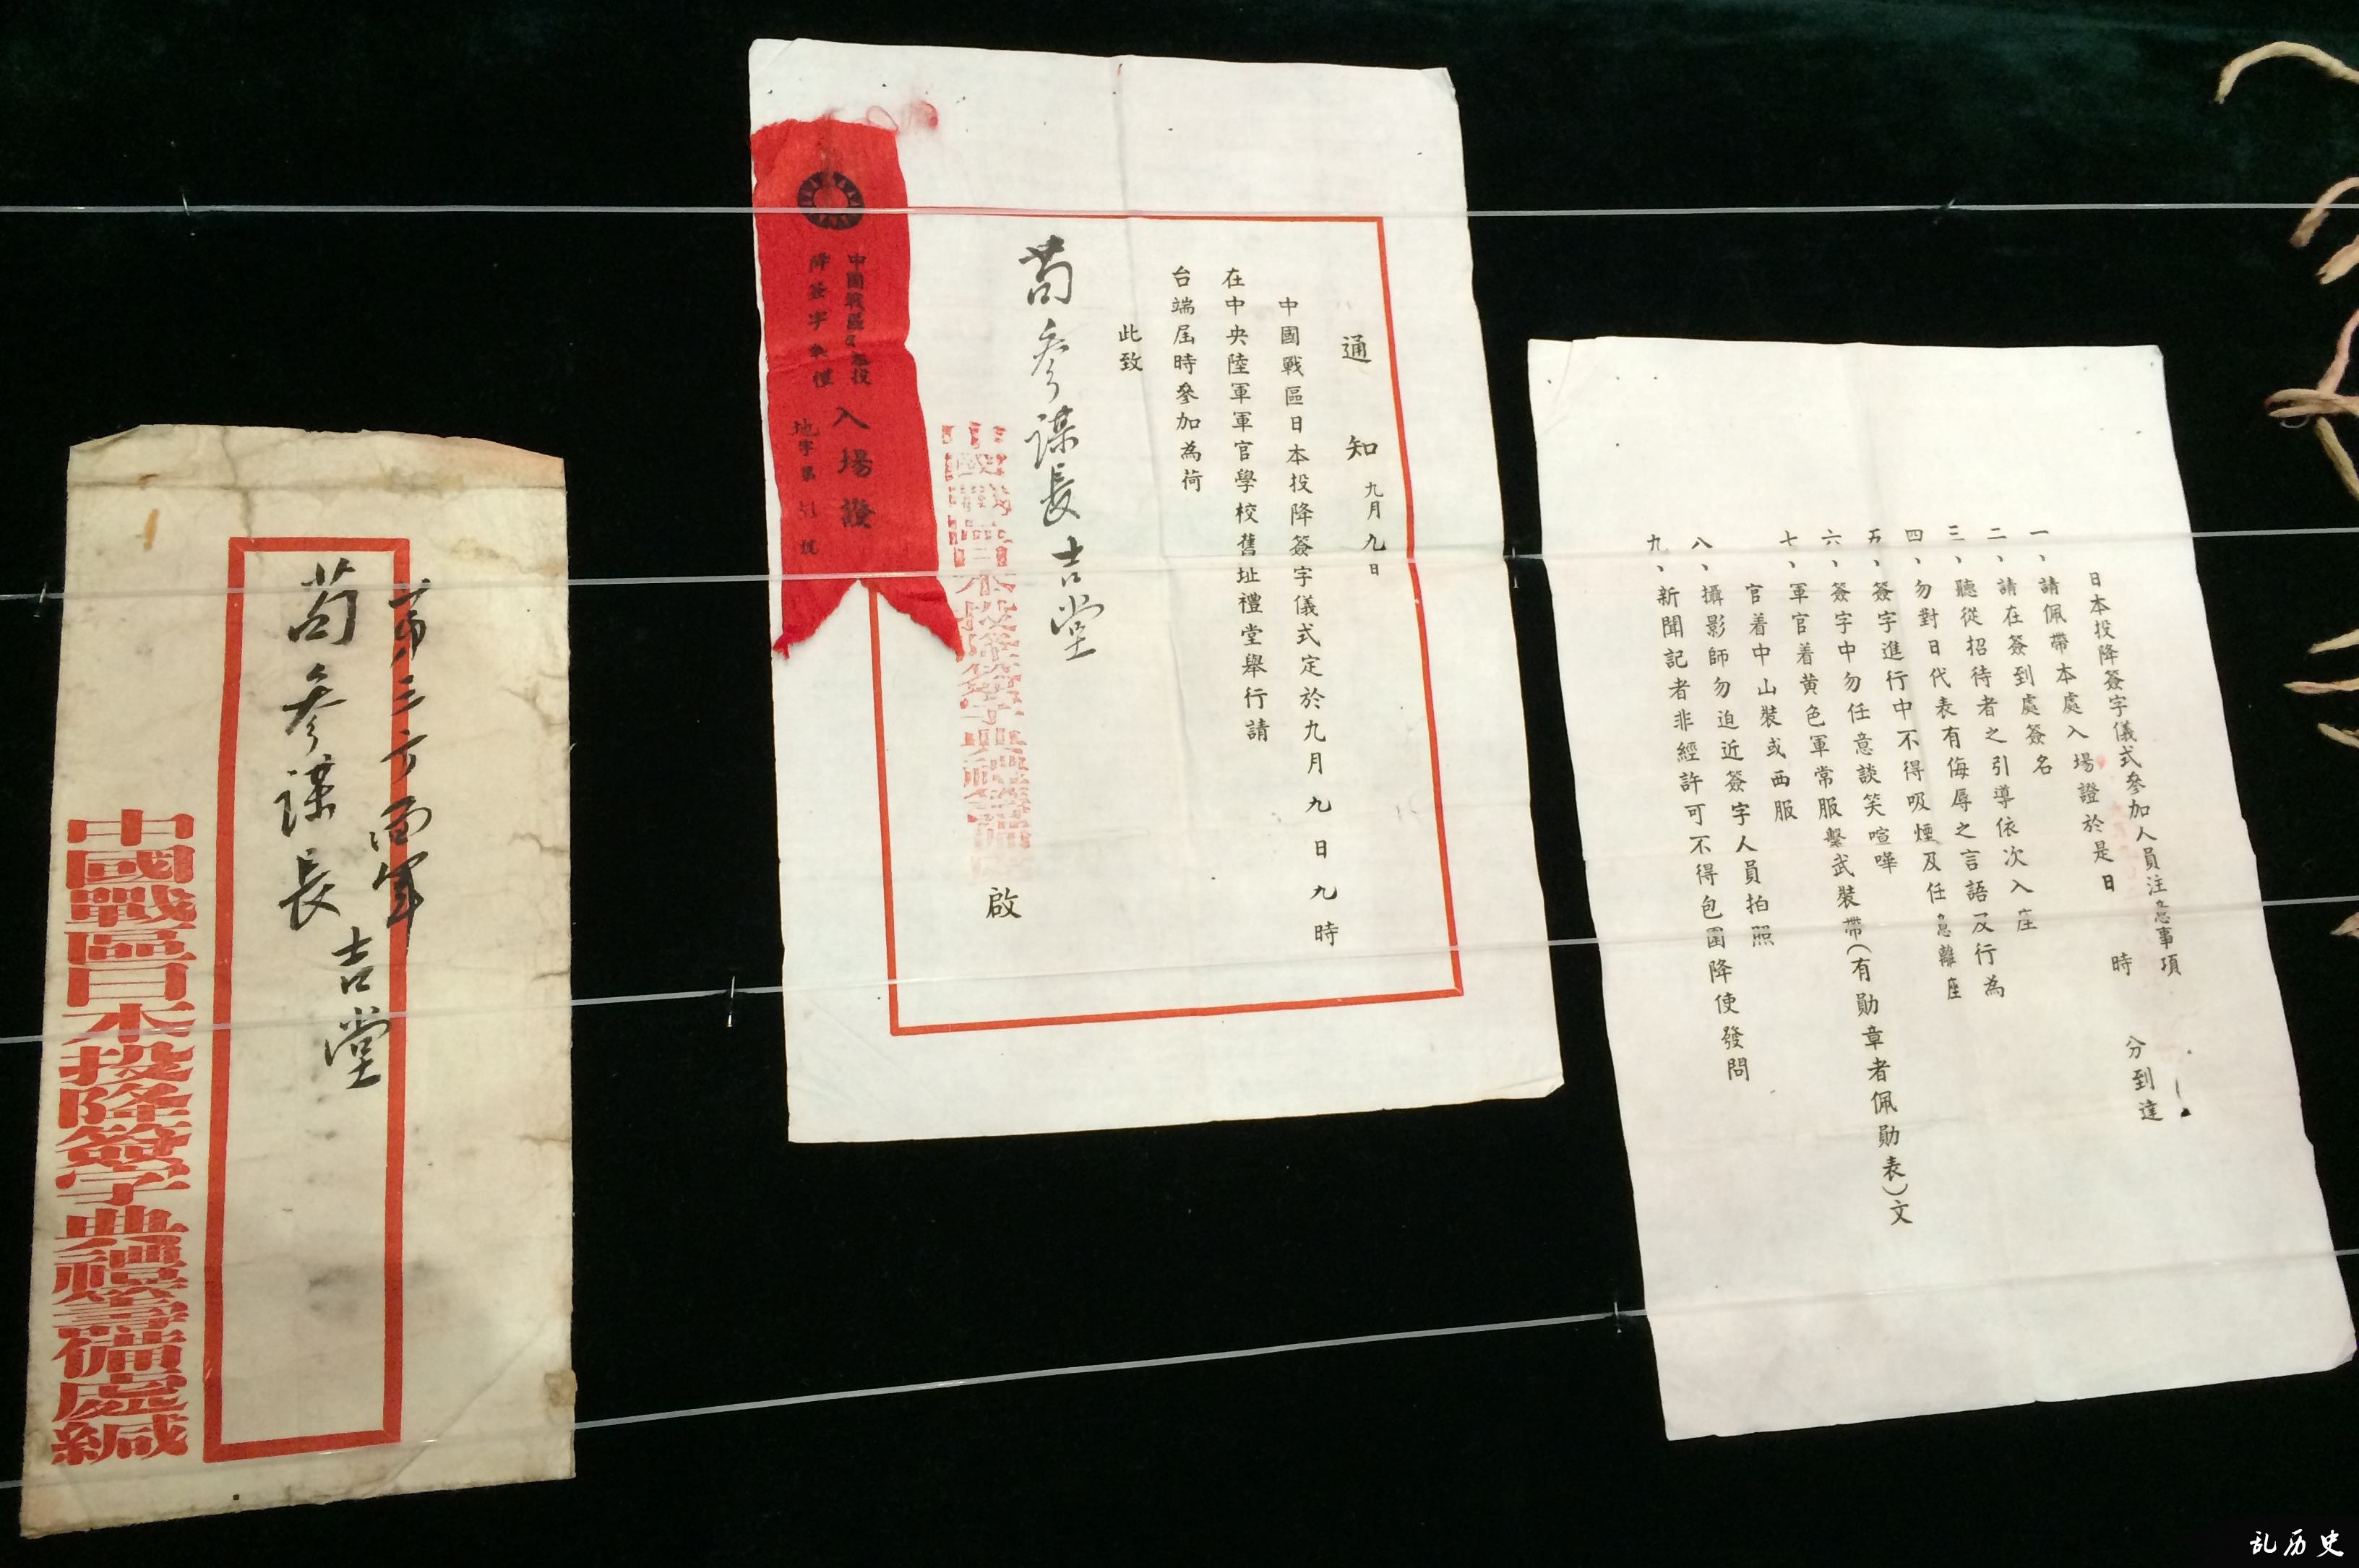 第三方面軍
苟參謀長吉堂
中國戰區日本投降簽字典禮籌備處緘
通知 九月九日
中國戰區日本投降簽字儀式定於九月九日九時
在中央陸軍軍官學校舊址禮堂舉行請
台端屆時參加為荷
此致
苟參謀長吉堂
中國戰區日本投降簽字典禮籌備處 啟
中國戰區日本投
降簽字典禮
入場證
地字第 號
日本投降簽字儀式參加人員注意事項
一、請佩帶本處入場證於是日 時 分到達
二、請在簽到處簽名
三、聽從招待者之引導依次入座
四、勿對日代表有侮辱之言語及行為
五、簽字進行中不得吸煙及任意離座
六、簽字中勿任意談笑喧嘩
七、軍官着黄色軍常服繫武裝帶(有勛章者佩勛表)文
官着中山裝或西服
八、攝影師勿迫近簽字人員拍照
九、新聞記者非經許可不得包圍降使發問
乱历史